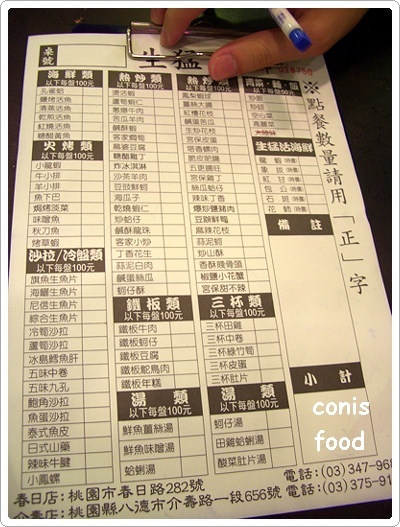 桌號
生猛
海鮮類
以下每盤100元
孔雀蛤
鹽烤活魚
清蒸活魚
乾煎活魚
紅燒活魚
醋醋活魚
火烤類
以下每盤100元
小龍蝦
牛小排
羊小排
魚下巴
焗烤淡菜
味噌魚
秋刀魚
烤草蝦
沙拉/冷盤類
以下每盤100元
旗魚生魚片
海鱺生魚片
尼信生魚片
綜合生魚片
冷筍沙拉
蘆筍沙拉
冰島鱈魚肝
五味中卷
五味九孔
鮑角沙拉
魚蛋沙拉
泰式魚皮
日式山藥
辣味牛腱
小鳳螺
熱炒類
以下每盤100元
燙活蝦
蘆筍蝦仁
果香蝦仁
鹹酥蝦
客家燜筍
麻婆豆腐
糖醋雞丁
炸冰淇淋
沙茶羊肉
豆豉鮮蚵
海瓜子
乾燒蝦仁
炒蛤仔
鹹酥龍珠
客家小炒
丁香花生
蒜泥白肉
鹹蛋絲瓜
蚵仔酥
鐵板類
以下每盤100元
鐵板牛肉
鐵板蚵仔
鐵板豆腐
鐵板鴕鳥肉
鐵板年糕
湯類
以下每盤100元
鮮魚薑絲湯
鮮魚味噌湯
蛤蜊湯
熱炒類
以下每盤100元
鳳梨蝦球
薑絲大腸
紅糟花枝
鹹蛋苦瓜
生炒花枝
宮保皮蛋
塔香螺肉
脆皮肥腸
五更腸旺
宮保雞丁
絲瓜蛤仔
辣味丁香
爆炒鹽豬肉
豆瓣鮮蚵
麻辣花枝
蒜泥蚵
炒山蘇
香酥胰骨頭
椒鹽小花蟹
宮保甜不辣
三杯類
以下每盤100元
三杯田雞
三杯中卷
三杯綠竹筍
三杯皮蛋
三杯肚片
湯類
以下每盤100元
蚵仔湯
田雞蛤蜊湯
酸菜肚片湯
空心菜
高麗菜
生猛活海鮮
龍蝦(時價)
象拔(時價)
紅甘(時價)
包公(時價)
石斑(時價)
花鯽(時價)
備註
小計
※點餐數量請用「正」字
conis
food
春日店:桃園市春日路282號
電話:(03)347-968
介壽店:桃園縣八德市介壽路一段656號
電話:(03)375-91